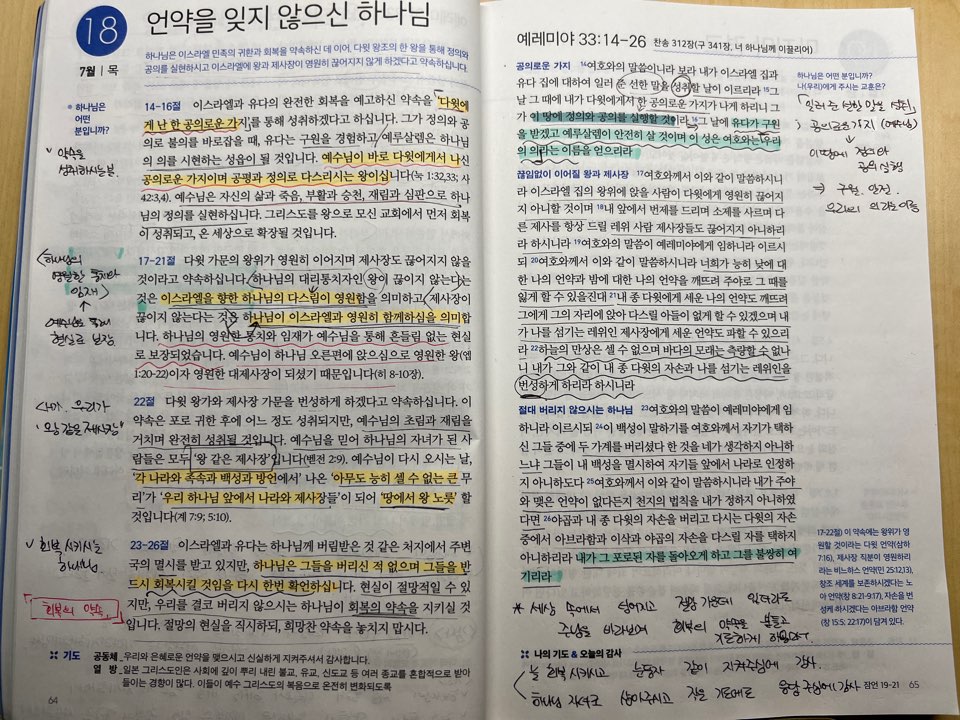 18
7월 | 목
언약을 잊지 않으신 하나님
하나님은 이스라엘 민족의 귀환과 회복을 약속하신 데 이어, 다윗 왕조의 한 왕을 통해 정의와
공의를 실현하시고 이스라엘에 왕과 제사장이 영원히 끊어지지 않게 하겠다고 약속하십니다.
하나님은
어떤
분입니까?
약속을
성취하시는 분.
14-16절 이스라엘과 유다의 완전한 회복을 예고하신 약속을 '다윗에
게 난 한 공의로운 가지'를 통해 성취하겠다고 하십니다. 그가 정의와 공
의로 불의를 바로잡을 때, 유다는 구원을 경험하고 예루살렘은 하나님
의 의를 시현하는 성읍이 될 것입니다. 예수님이 바로 다윗에게서 나신
공의로운 가지이며 공평과 정의로 다스리시는 왕이십니다(눅 1:32,33; 사
42:3,4). 예수님은 자신의 삶과 죽음, 부활과 승천, 재림과 심판으로 하나
님의 정의를 실현하십니다. 그리스도를 왕으로 모신 교회에서 먼저 회복
이 성취되고, 온 세상으로 확장될 것입니다.
하나님의
영원한 통치와
임재
예수님을 통해
현실로 보장
17-21절 다윗 가문의 왕위가 영원히 이어지며 제사장도 끊어지지 않을
것이라고 약속하십니다. 하나님의 대리통치자인 왕이 끊이지 않는다는
것은 이스라엘을 향한 하나님의 다스림이 영원함을 의미하고, 제사장이
끊이지 않는다는 것은 하나님이 이스라엘과 영원히 함께하심을 의미합
니다. 하나님의 영원한 통치와 임재가 예수님을 통해 흔들림 없는 현실
로 보장되었습니다. 예수님이 하나님 오른편에 앉으심으로 영원한 왕(엡
1:20-22)이자 영원한 대제사장이 되셨기 때문입니다(히 8-10장).
우리가
왕 같은 제사장
22절 다윗 왕가와 제사장 가문을 번성하게 하겠다고 약속하십니다. 이
약속은 포로 귀환 후에 어느 정도 성취되지만, 예수님의 초림과 재림을
거치며 완전히 성취될 것입니다. 예수님을 믿어 하나님의 자녀가 된 사
람들은 모두 '왕 같은 제사장'입니다(벧전 2:9). 예수님이 다시 오시는 날,
'각 나라와 족속과 백성과 방언에서' 나온 '아무도 능히 셀 수 없는 큰 무
리'가 '우리 하나님 앞에서 나라와 제사장들'이 되어 '땅에서 왕 노릇' 할
것입니다(계 7:9; 5:10).
회복시키시는
하나님
회복의 약속
23-26절 이스라엘과 유다는 하나님께 버림받은 것 같은 처지에서 주변
국의 멸시를 받고 있지만, 하나님은 그들을 버리신 적 없으며 그들을 반
드시 회복시킬 것임을 다시 한번 확언하십니다. 현실이 절망적일 수 있
지만, 우리를 결코 버리지 않으시는 하나님이 회복의 약속을 지키실 것
입니다. 절망의 현실을 직시하되, 희망찬 약속을 놓치지 맙시다.
기도 공동체_우리와 은혜로운 언약을 맺으시고 신실하게 지켜주셔서 감사합니다.
열 방_일본 그리스도인은 사회에 깊이 뿌리 내린 불교, 유교, 신도교 등 여러 종교를 혼합적으로 받아
들이는 경향이 많다. 이들이 예수 그리스도의 복음으로 온전히 변화되도록
64
예레미야 33:14-26 찬송 312장(구 341장, 너 하나님께 이끌리어)
공의로운 가지 14여호와의 말씀이니라 보라 내가 이스라엘 집과
유다 집에 대하여 일러 준 선한 말을 성취할 날이 이르리라 15그
날 그 때에 내가 다윗에게서 한 공의로운 가지가 나게 하리니 그
가 이 땅에 정의와 공의를 실행할 것이라 16그 날에 유다가 구원
을 받겠고 예루살렘이 안전히 살 것이며 이 성은 여호와는 우리
의 의라는 이름을 얻으리라
끊임없이 이어질 왕과 제사장 17여호와께서 이와 같이 말씀하시니
라 이스라엘 집의 왕위에 앉을 사람이 다윗에게 영원히 끊어지
지 아니할 것이며 18내 앞에서 번제를 드리며 소제를 사르며 다
른 제사를 항상 드릴 레위 사람 제사장들도 끊어지지 아니하리
라 하시니라 19여호와의 말씀이 예레미야에게 임하니라 이르시
되 20여호와께서 이와 같이 말씀하시니라 너희가 능히 낮에 대
한 나의 언약과 밤에 대한 나의 언약을 깨뜨려 주야로 그 때를
잃게 할 수 있을진대 21내 종 다윗에게 세운 나의 언약도 깨뜨려
그에게 그의 자리에 앉아 다스릴 아들이 없게 할 수 있겠으며 내
가 나를 섬기는 레위인 제사장에게 세운 언약도 파할 수 있으리
라 22하늘의 만상은 셀 수 없으며 바다의 모래는 측량할 수 없나
니 내가 그와 같이 내 종 다윗의 자손과 나를 섬기는 레위인을
번성하게 하리라 하시니라
절대 버리지 않으시는 하나님 23여호와의 말씀이 예레미야에게 임
하니라 이르시되 24이 백성이 말하기를 여호와께서 자기가 택하
신 그들 중에 두 가계를 버리셨다 한 것을 네가 생각하지 아니하
느냐 그들이 내 백성을 멸시하여 자기들 앞에서 나라로 인정하
지 아니하도다 25여호와께서 이와 같이 말씀하시니라 내가 주야
와 맺은 언약이 없다든지 천지의 법칙을 내가 정하지 아니하였
다면 26야곱과 내 종 다윗의 자손을 버리고 다시는 다윗의 자손
중에서 아브라함과 이삭과 야곱의 자손을 다스릴 자를 택하지
아니하리라 내가 그 포로된 자를 돌아오게 하고 그를 불쌍히 여
기리라
하나님은 어떤 분입니까?
나(우리)에게 주시는 교훈은?
일러 준 선한 말을 성취
공의로운 가지 (예수님)
이 땅에 정의와
공의 실행
⇒ 구원, 안전,
우리의 의라는 이름
17-22절) 이 약속에는 왕위가 영
원할 것이라는 다윗 언약(삼하
7:16), 제사장 직분이 영원하리
라는 비느하스 언약(민 25:12,13),
창조 세계를 보존하시겠다는 노
아 언약(창 8:21-9:17), 자손을 번
성케 하시겠다는 아브라함 언약
(창 15:5; 22:17)이 담겨 있다.
* 세상 속에서 넘어지고 절망 가운데 있더라도
주님을 바라보며 회복의 약속을 붙들고
기도하게 하옵소서.
나의 기도 & 오늘의 감사
늘 회복시키시고 눈동자 같이 지켜주심에 감사.
하나님 자녀로 삼아주시고 작은 기도에도 응답 주심에 감사
잠언 19-21 65